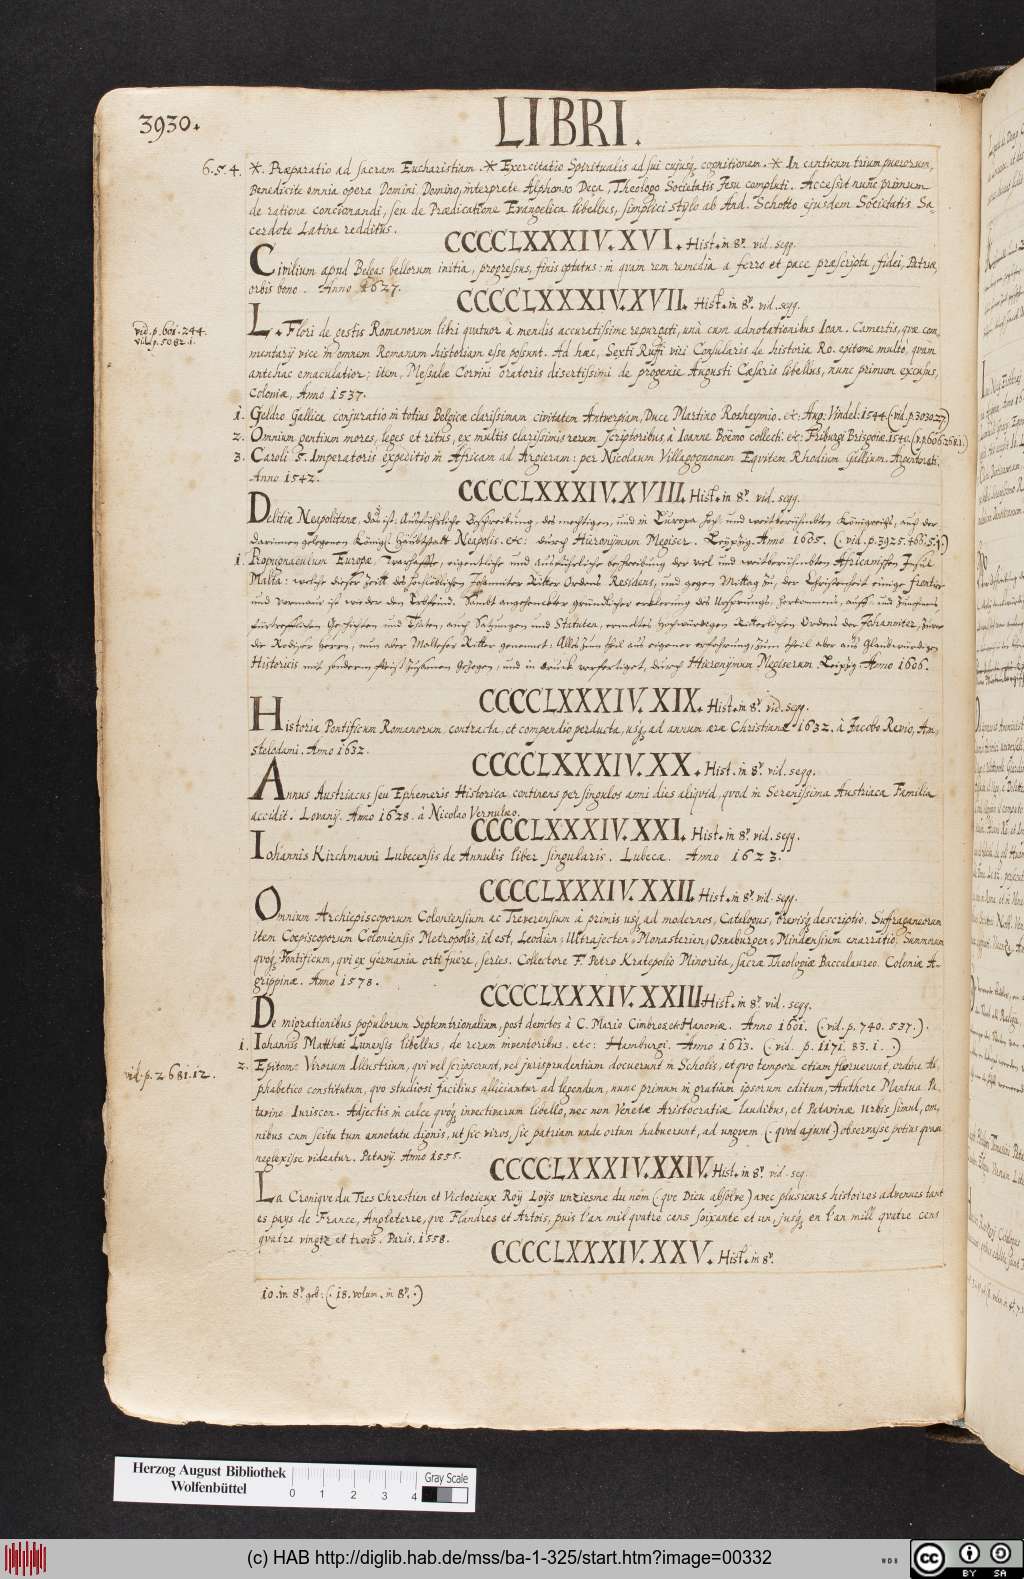 3930.
LIBRI.
6.5.4. * Præparatio ad sacram Eucharistiam. * Exercitatio Spiritualis ad sui cujusq; cognitionem. * In canticum trium puerorum,
Benedicite omnia opera Domini Domino, interprete Alphonso Deça, Theologo Societatis Jesu compluti. Accessit nunc primum
de ratione concionandi, seu de Prædicatione Evangelica libellus, simplici stylo ab And. Schotto ejusdem Societatis Sa-
cerdote Latine redditus.
CCCCLXXXIV.XVI. Hist. in 8º. vid. seqq.
Civilium apud Belgas bellorum initia, progressus, finis optatus: in quam rem remedia a ferro et pace præscripta, fidei, Patriæ,
orbis bono. Anno 1627.
CCCCLXXXIV.XVII. Hist. in 8º. vid. seqq.
vid. p. 601. 244.
vid. p. 5082. 1.
L. Flori de gestis Romanorum libri quatuor à mendis accuratissime repurgati, unà cum adnotationibus Ioan. Camertis, quæ com-
mentarij vice in omnem Romanam historiam esse possunt. Ad hæc, Sexti Ruffi viri Consularis de historia Ro. epitome multò, quàm
antehac emaculatior; item, Messalæ Corvini oratoris disertissimi de progenie Augusti Cæsaris libellus, nunc primum excusus,
Coloniæ, Anno 1537.
1. Geldro Gallica conjuratio in totius Belgicæ clarissimam civitatem Antverpiam, Duce Martino Rosheymio. etc: Aug: Vindel: 1544. (vid. p. 3030.27)
2. Omnium gentium mores, leges et ritus, ex multis clarissimis rerum scriptoribus, à Ioanne Boëmo collecti: etc: Friburgi Brisgoiæ. 1540.
3. Caroli 5. Imperatoris expeditio in Africam ad Argieram: per Nicolaum Villagognonem Equitem Rhodium Gallium. Argentorati.
Anno 1542.
CCCCLXXXIV.XVIII. Hist. in 8º. vid. seqq.
Delitiæ Neapolitanæ, das ist: Ausführliche Beschreibung, des mechtigen, und in Europa hoch und weitberühmbten Königreichs, auch der
darinnen gelegenen Königl: Häubtstatt Neapolis. etc: durch Hieronymum Megiser. Leipzig. Anno 1605. (vid. p. 3925. 466. 5. 4.)
1. Propugnaculum Europæ, Warhaffte, eigentliche und ausführliche beschreibung der viel und weitberühmbten Africanischen Insul
Malta: welche dieser zeitt des hochlöblichen Johanniter Ritter Ordens Residens, und gegen Mittag zu, der Christenheit einige frontier
und vormaur ist wieder den Erbfeind. Sambt angehenckter gründlicher erklerung des Ursprungs, herkommens, auff- und Zunehmens,
fürtrefflichen Geschichten und Thaten, auch Satzungen und Statuten, ermeltes hochwürdigen Ritterlichen Ordens der Johanniter, Zuvor
die Rodiser herrn, nun aber Maltheser Ritter genennet: Alles zum theil aus eigener erfahrung, zum theil aber aus Glaubwürdigen
Historicis mit sonderm fleiß zusamen gezogen, und in druck verfertiget, durch Hieronymum Megiserum. Leipzig Anno 1606.
CCCCLXXXIV.XIX. Hist. in 8º. vid. seqq.
Historia Pontificum Romanorum contracta, et compendio perducta, usq; ad annum æræ Christianæ 1632. à Jacobo Revio, Am-
stelodami. Anno 1632.
CCCCLXXXIV.XX. Hist. in 8º. vid. seqq.
Annus Austriacus seu Ephemeris Historica, continens per singulos anni dies aliquid, quod in Serenissima Austriaca Familia
accidit. Lovanij. Anno 1628. à Nicolao Vernulæo.
CCCCLXXXIV.XXI. Hist. in 8º. vid. seqq.
Iohannis Kirchmanni Lubecensis de Annulis liber singularis. Lubecæ. Anno 1623.
CCCCLXXXIV.XXII. Hist. in 8º. vid. seqq.
Omnium Archiepiscoporum Coloniensium ac Treverensium à primis usq; ad modernos, Catalogus, brevisq; descriptio. Suffraganeorum
item Coepiscoporum Coloniensis Metropolis, id est, Leodien: Ultrajecten: Monasterien: Osnaburgen: Mindensium enarratio. Summorum
quoq; Pontificum, qui ex germania orti fuere, series. Collectore F. Petro Kratepolio Minorita, sacræ Theologiæ Baccalaureo. Coloniæ A-
grippinæ. Anno 1578.
CCCCLXXXIV.XXIII. Hist. in 8º. vid. seqq.
De migrationibus populorum Septemtrionalium, post devictos à C. Mario Cimbros, etc: Hanoviæ. Anno 1601. (: vid. p. 740. 537.).
1. Iohannis Matthæi Lunensis libellus, de rerum inventoribus, etc: Hamburgi. Anno 1613. (: vid. p. 1171. 83. 1. :)
vid. p. 2681. 12.
2. Epitome Virorum Illustrium, qui vel scripserunt, vel jurisprudentiam docuerunt in Scholis, et quo tempore etiam floruerunt, ordine Al-
phabetico constitutum, quo studiosi facilius alliciantur ad legendum, nunc primum in gratiam ipsorum editum, Authore Mantua Pa-
tavino Iuriscon. Adjectis in calce quoq; invectivarum libello, nec non Venetæ Aristocratiæ laudibus, et Patavinæ urbis simul, om-
nibus cum scitu tum annotatu dignis, ut sic viros, sic patriam unde ortum habuerunt, ad unguem (: quod ajunt) observasse potius quam
neglexisse videatur. Patavij. Anno 1555.
CCCCLXXXIV.XXIV. Hist. in 8º. vid. seq.
La Cronique du Tres Chrestien et Victorieux Roÿ Loÿs unziesme du nom (que Dieu absolve) avec plusieurs histoires advenues tant
es pays de France, Angleterre, que Flandres et Artois, puis l'an mil quatre cens soixante et un, jusq; en l'an mill quatre cens
quatre vingtz et trois. Paris. 1558.
CCCCLXXXIV.XXV. Hist. in 8º.
10. in 8º. geb: (: 18. volum. in 8º. :)
Herzog August Bibliothek
Wolfenbüttel
0 1 2 3 4
Gray Scale
(c) HAB http://diglib.hab.de/mss/ba-1-325/start.htm?image=00332
WDB
cc BY SA